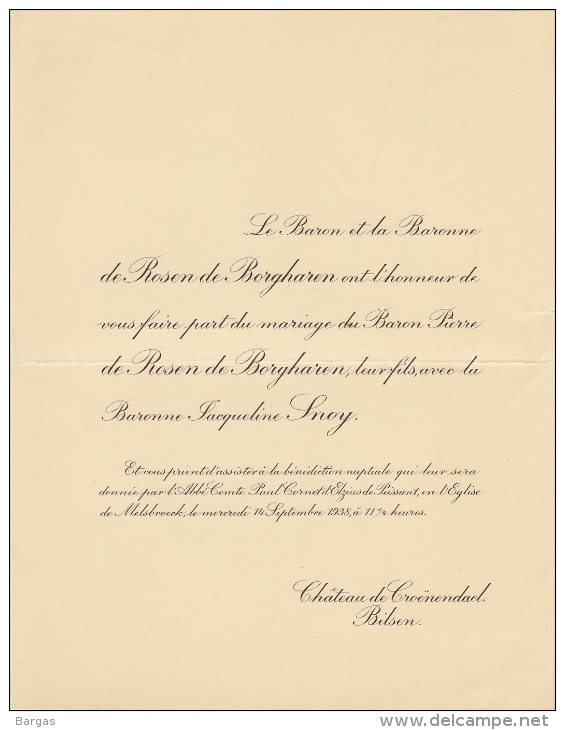 Le Baron et la Baronne
de Rosen de Borgharen ont l'honneur de
vous faire part du mariage du Baron Pierre
de Rosen de Borgharen, leur fils, avec la
Baronne Jacqueline Snoy.
Et vous prient d'assister à la bénédiction nuptiale qui leur sera
donnée par l'Abbé Comte Paul Cornet d'Elzius de Peissant, en l'Eglise
de Melsbroeck, le mercredi 14 Septembre 1938, à 11 ½ heures.
Château de Croënendael.
Bilsen.
Bargas
delcampe.net